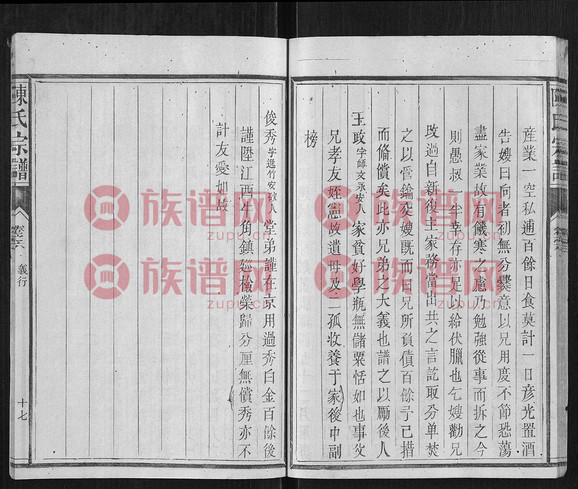 產業一空私逋百餘日食莫計一日彥光置酒
告嫂曰向者初無分爨意以兄用度不節恐蕩
盡家業故有饑寒之慮乃勉強從事而拆之今
則愚叔一半幸存亦足以給伏臘也乞嫂勸兄
改過自新復主家務當出共之言訖取分单焚
之以管鑰交嫂既而曰兄所負債百餘子已措
而俻償矣此亦兄弟之大義也譜之以勵後人
王政字師文永安人家貧好學瓶無儲粟恬如也事父
兄孝友姪憲故遺母及二孤收養于家後中副
榜
俊秀字進竹安敎人堂弟謹在京用過秀白金百餘後
謹陞江西牛角鎮廵檢榮歸分厘無償秀亦不
計友愛如故
陳氏宗譜
卷六
義行
十七
族谱网
zupu.cn
族谱网
zupu.cn
族谱网
zupu.cn
族谱网
zupu.cn